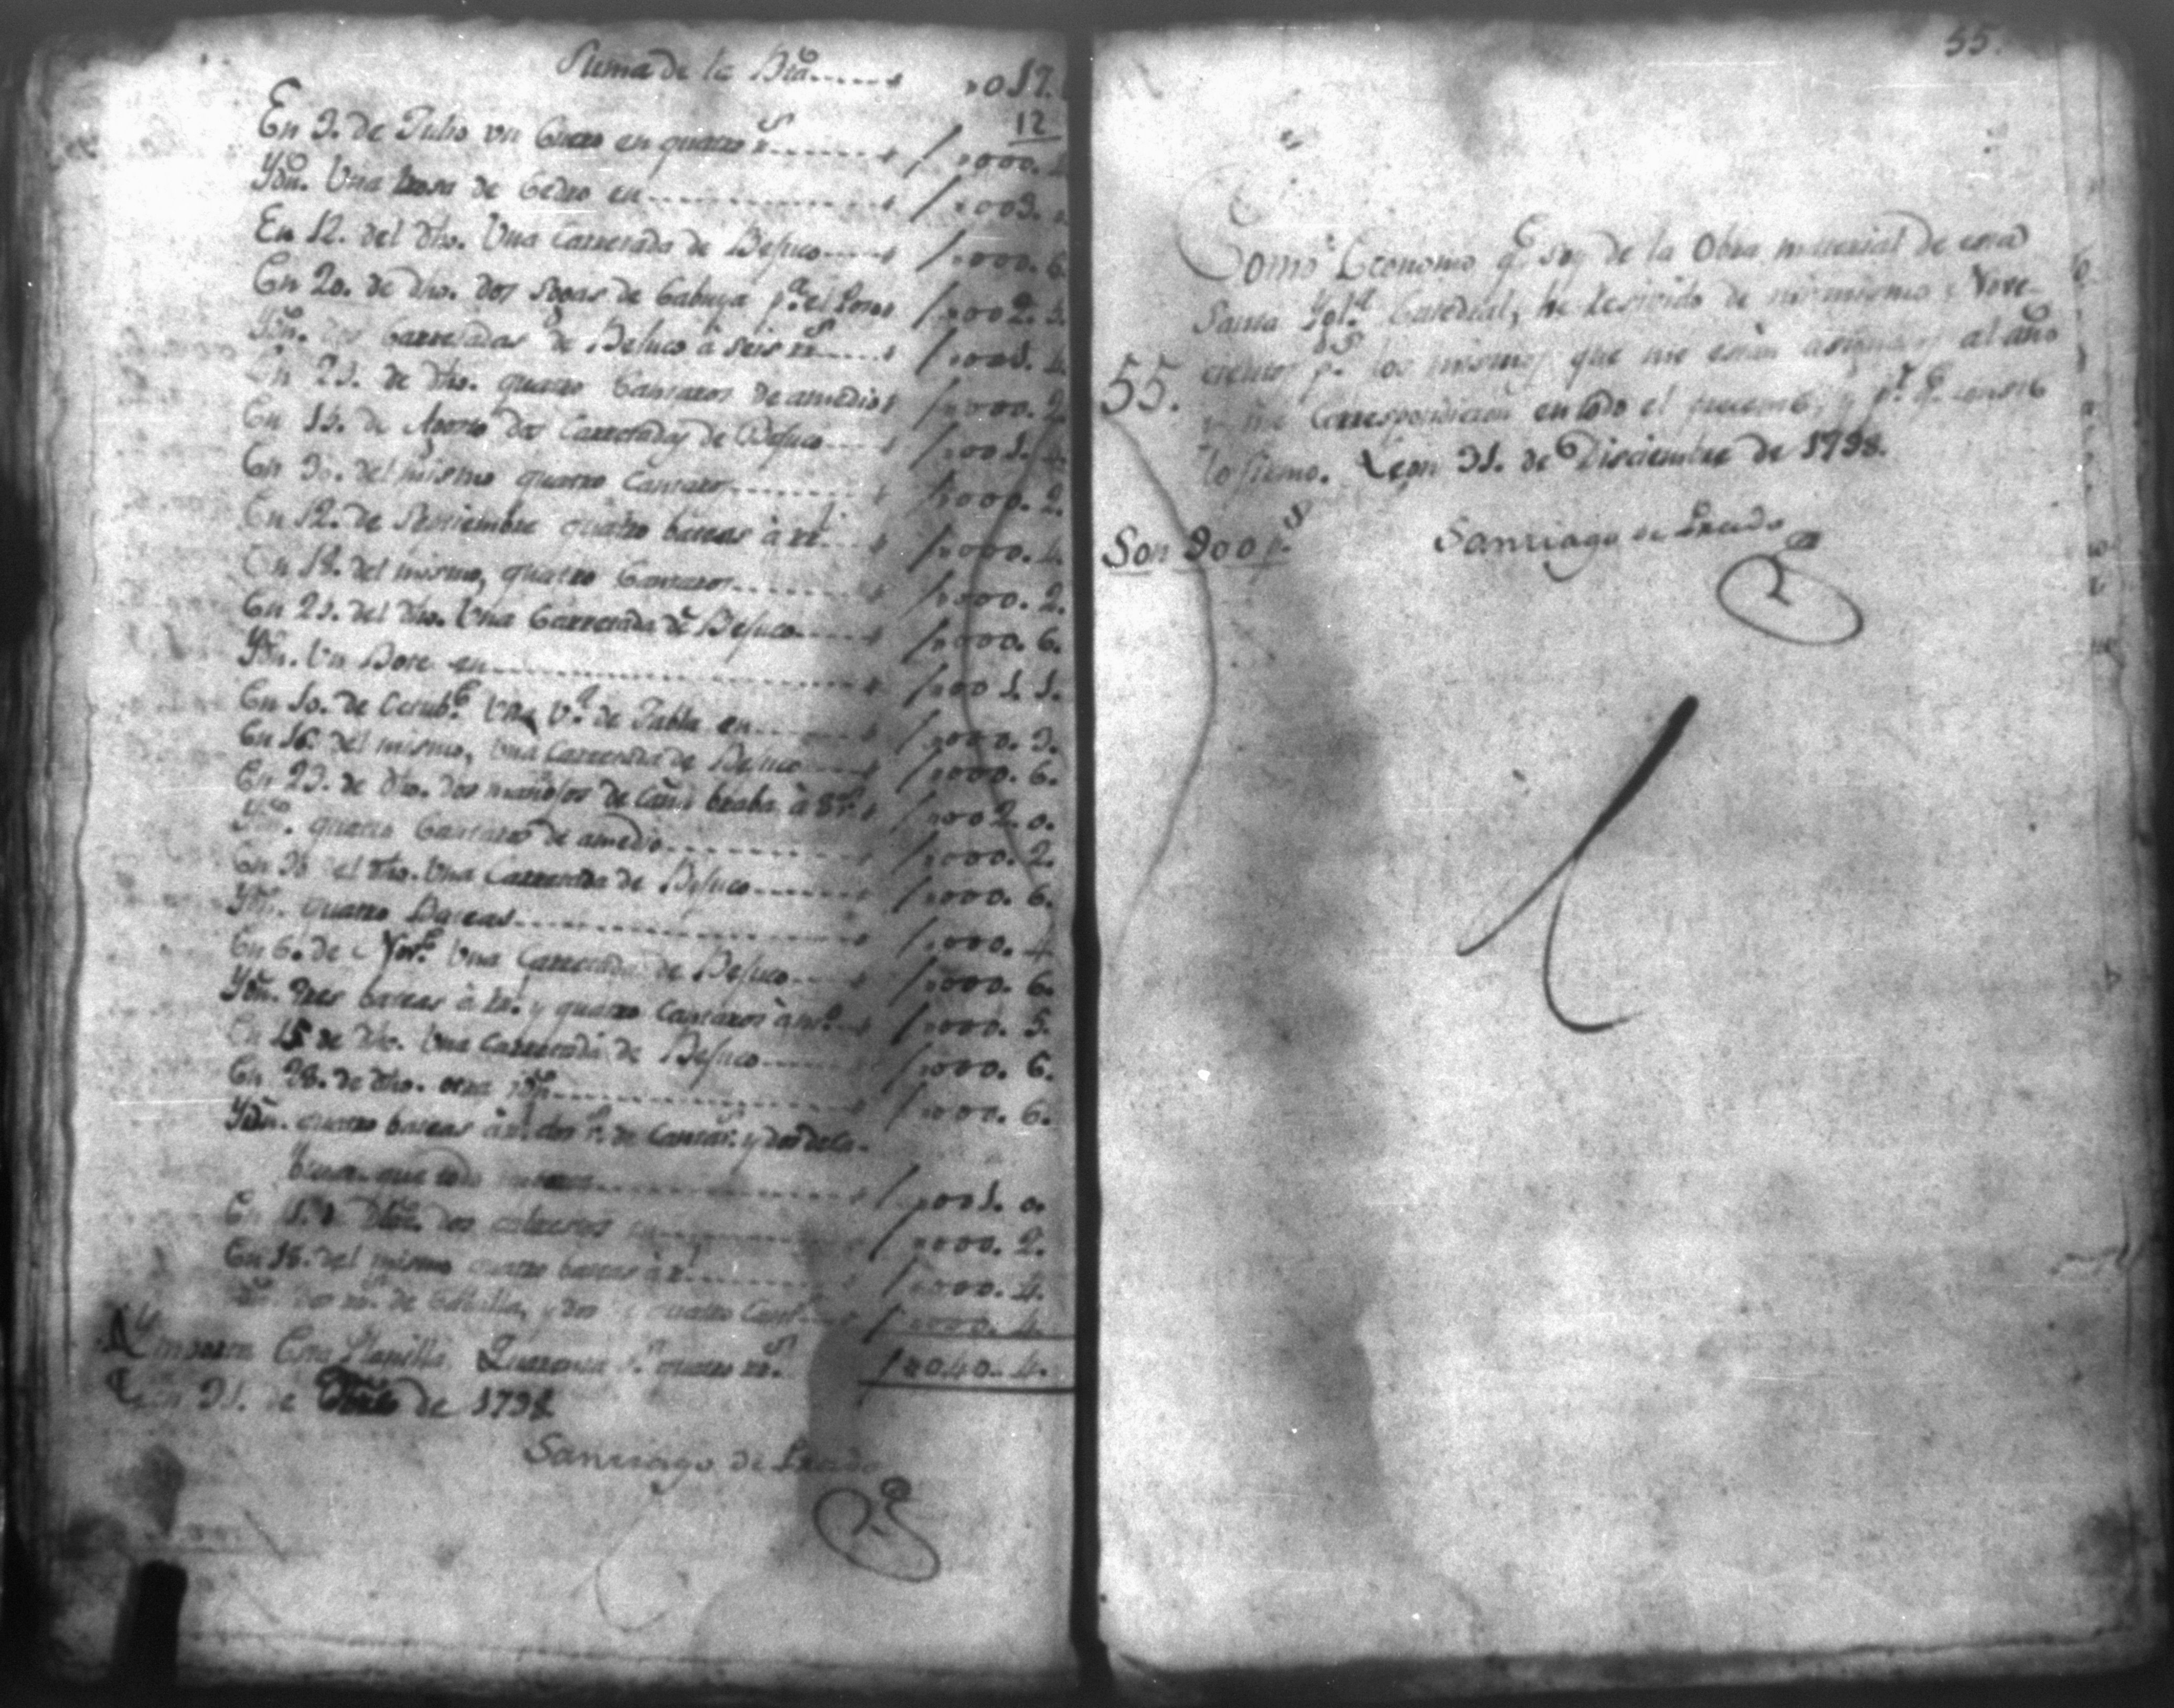 Suma de la Bta.
017.
12
En 3. de Julio un Cuero en quatro r.s 000. 4
Ydn. Una trosa de Cedro en 003.
En 12. del dho. Una Carretada de Befuco 000. 6
En 20. de dho. dos Sogas de Cabuya p.a el 002. 3.
Ydn. dos Carretadas de Befuco à seis rr.s 001. 4
En 23. de dho. quatro Cantaros de amedio 000. 2
En 13. de Agosto dos Carretadas de Befuco 001. 4
En 30. del mismo quatro Cantaros 000. 2.
En 12. de Septiembre quatro bateas à rl. 000. 4.
En 18. del mismo, quatro Cantaros 000. 2.
En 23. del dho. Una Carretada de Befuco 000. 6.
Ydn. Un Bote en 001. 1.
En 10. de Octub.e Una V.a de Tabla en 000. 3.
En 16. del mismo, Una Carretada de Befuco 000. 6.
En 23. de dho. dos manojos de Caña braba à 8 r.s 002. 0.
Ydn. quatro Cantaros de amedio 000. 2.
En 30 del dho. Una Carretada de Befuco 000. 6.
Ydn. quatro Bateas 000. 4
En 6. de Nov.e Una Carretada de Befuco 000. 6.
Ydn. tres bateas à rl. y quatro Cantaros à m.o 000. 5.
En 15 de dho. Una Carretada de Befuco 000. 6.
En 28. de dho. otra ydn. 000. 6.
Ydn. quatro bateas à rl. dos r.s de Cantar.s y dos de Ca-
buya que todo 001. 0.
En de Dbre. dos 000. 2.
En 16. del mismo quatro bateas à rl. 000. 4.
Ydn. dos de y dos quatro Cant.s 000. 4.
Ymporta Esta Planilla, Quarenta p.s quatro rr.s 040. 4.
Leon 31. de de 1798
Santiago de Prado
55.
Como Economo q.e soy de la Obra material de esta
Santa Ygl.a Catedral, he Resivido de mi mismo, Nove-
cientos p.s los mismos que me están asignados al año
55. y me Correspondieron en todo el presente, y p.a q.e conste
lo firmo. Leon 31. de Disciembre de 1798.
Son 900 p.s Santiago de Prado